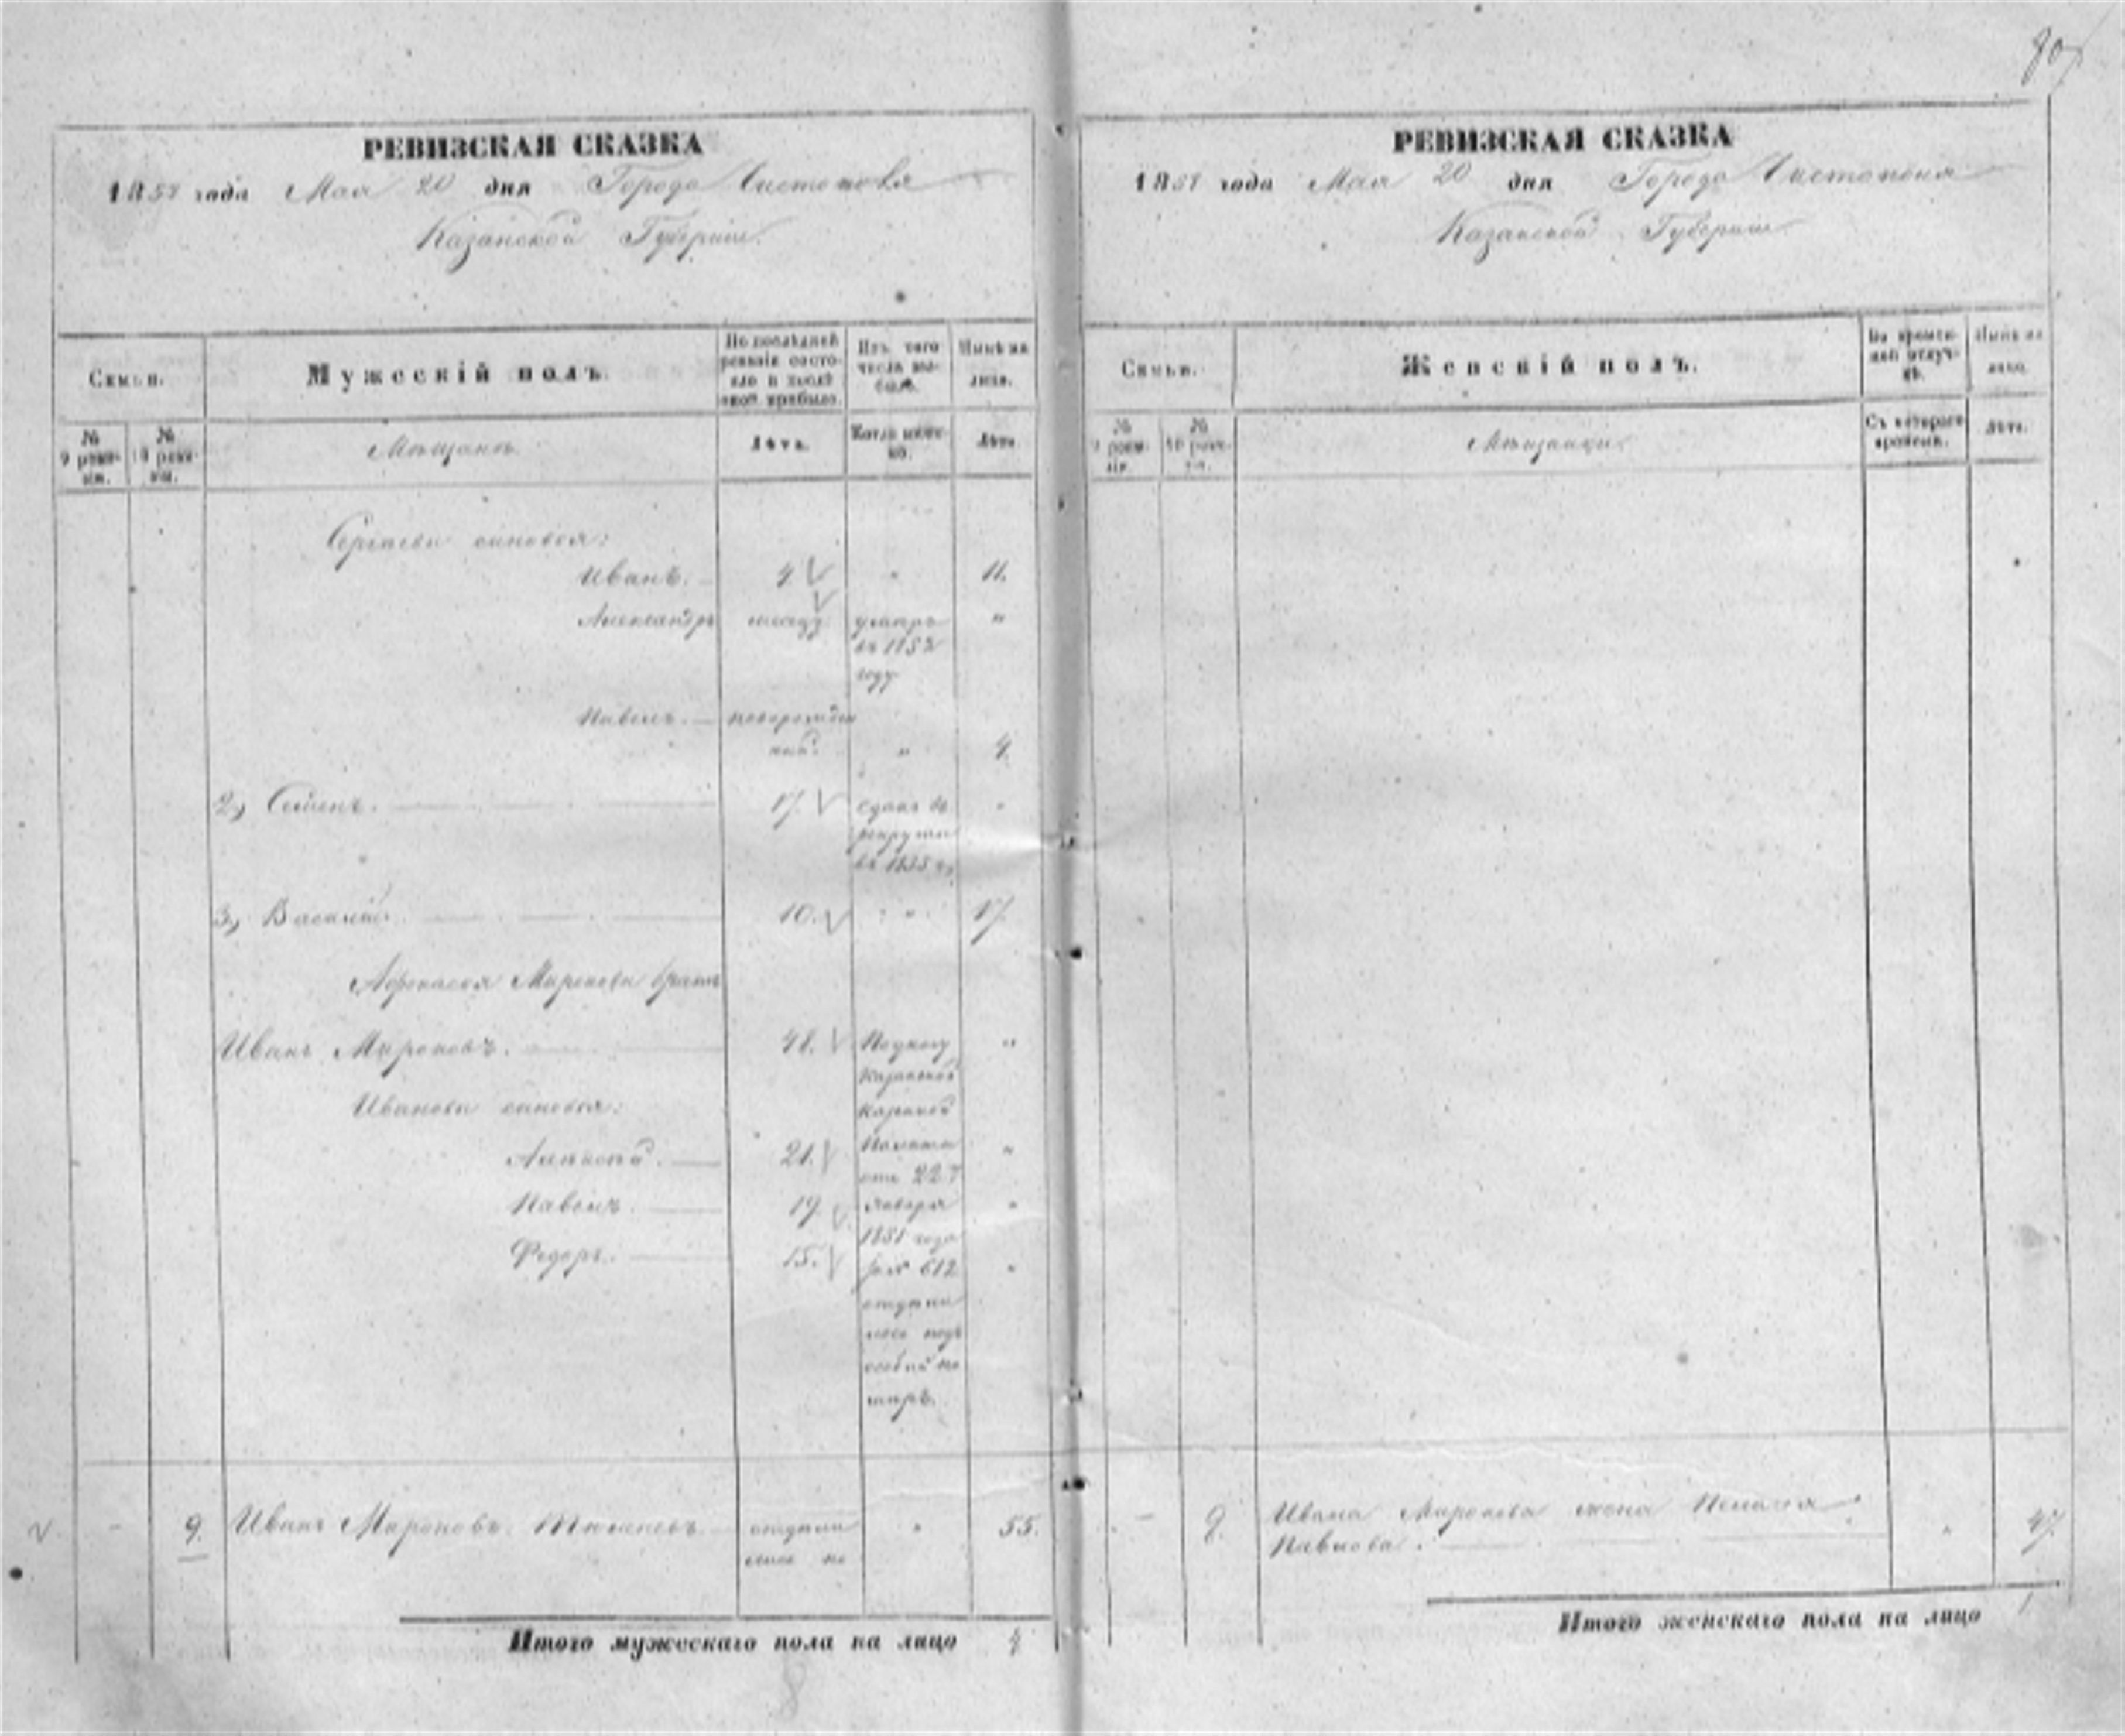 80
РЕВИЗСКАЯ СКАЗКА
1858 года Мая 20 дня Города Чистополя
Казанской Губернии.
Семьи.
Мужескій полъ.
По послѣдней ревизіи состояло и послѣ оной прибыло.
Изъ того числа выбыло.
Нынѣ на лицо.
№ 9 ревизіи.
№ 10 ревизіи.
Мѣщанъ
Лѣта.
Когда именно.
Лѣта.
Сергѣевы сыновья:
Иванъ. 4 " 11.
Александръ умеръ "
въ 1852
году
Павелъ. новорожден
ный. " 4
2, Семенъ. 17. сданъ въ "
рекруты
въ 1855 г,
3, Василій. 10. " 17.
Афонасья Миронова братъ
Иванъ Мироновъ. 48. По указу "
Казанской
Ивановы сыновья: Казенной
Алексѣй. 21. Палаты "
отъ 22
Павелъ. 19. Января "
1851 года
Федоръ. 15. за № 612 "
отдели
лось подъ
особый но
меръ.
9. Иванъ Мироновъ " 55.
Итого мужескаго пола на лицо 4
8
РЕВИЗСКАЯ СКАЗКА
1858 года Мая 20 дня Города Чистополя
Казанской Губернии
Семьи.
Женскій полъ.
Во временной отлучкѣ.
Нынѣ на лицо.
№ 9 ревизіи.
№ 10 ревизіи.
Мѣщанки
Съ котораго времени.
Лѣта.
9. Ивана Миронова жена Пелагея
Павлова. " 47.
Итого женскаго пола на лицо 1